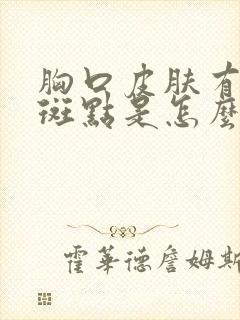 胸口皮肤有
斑點是怎麼
霍華德詹姆斯